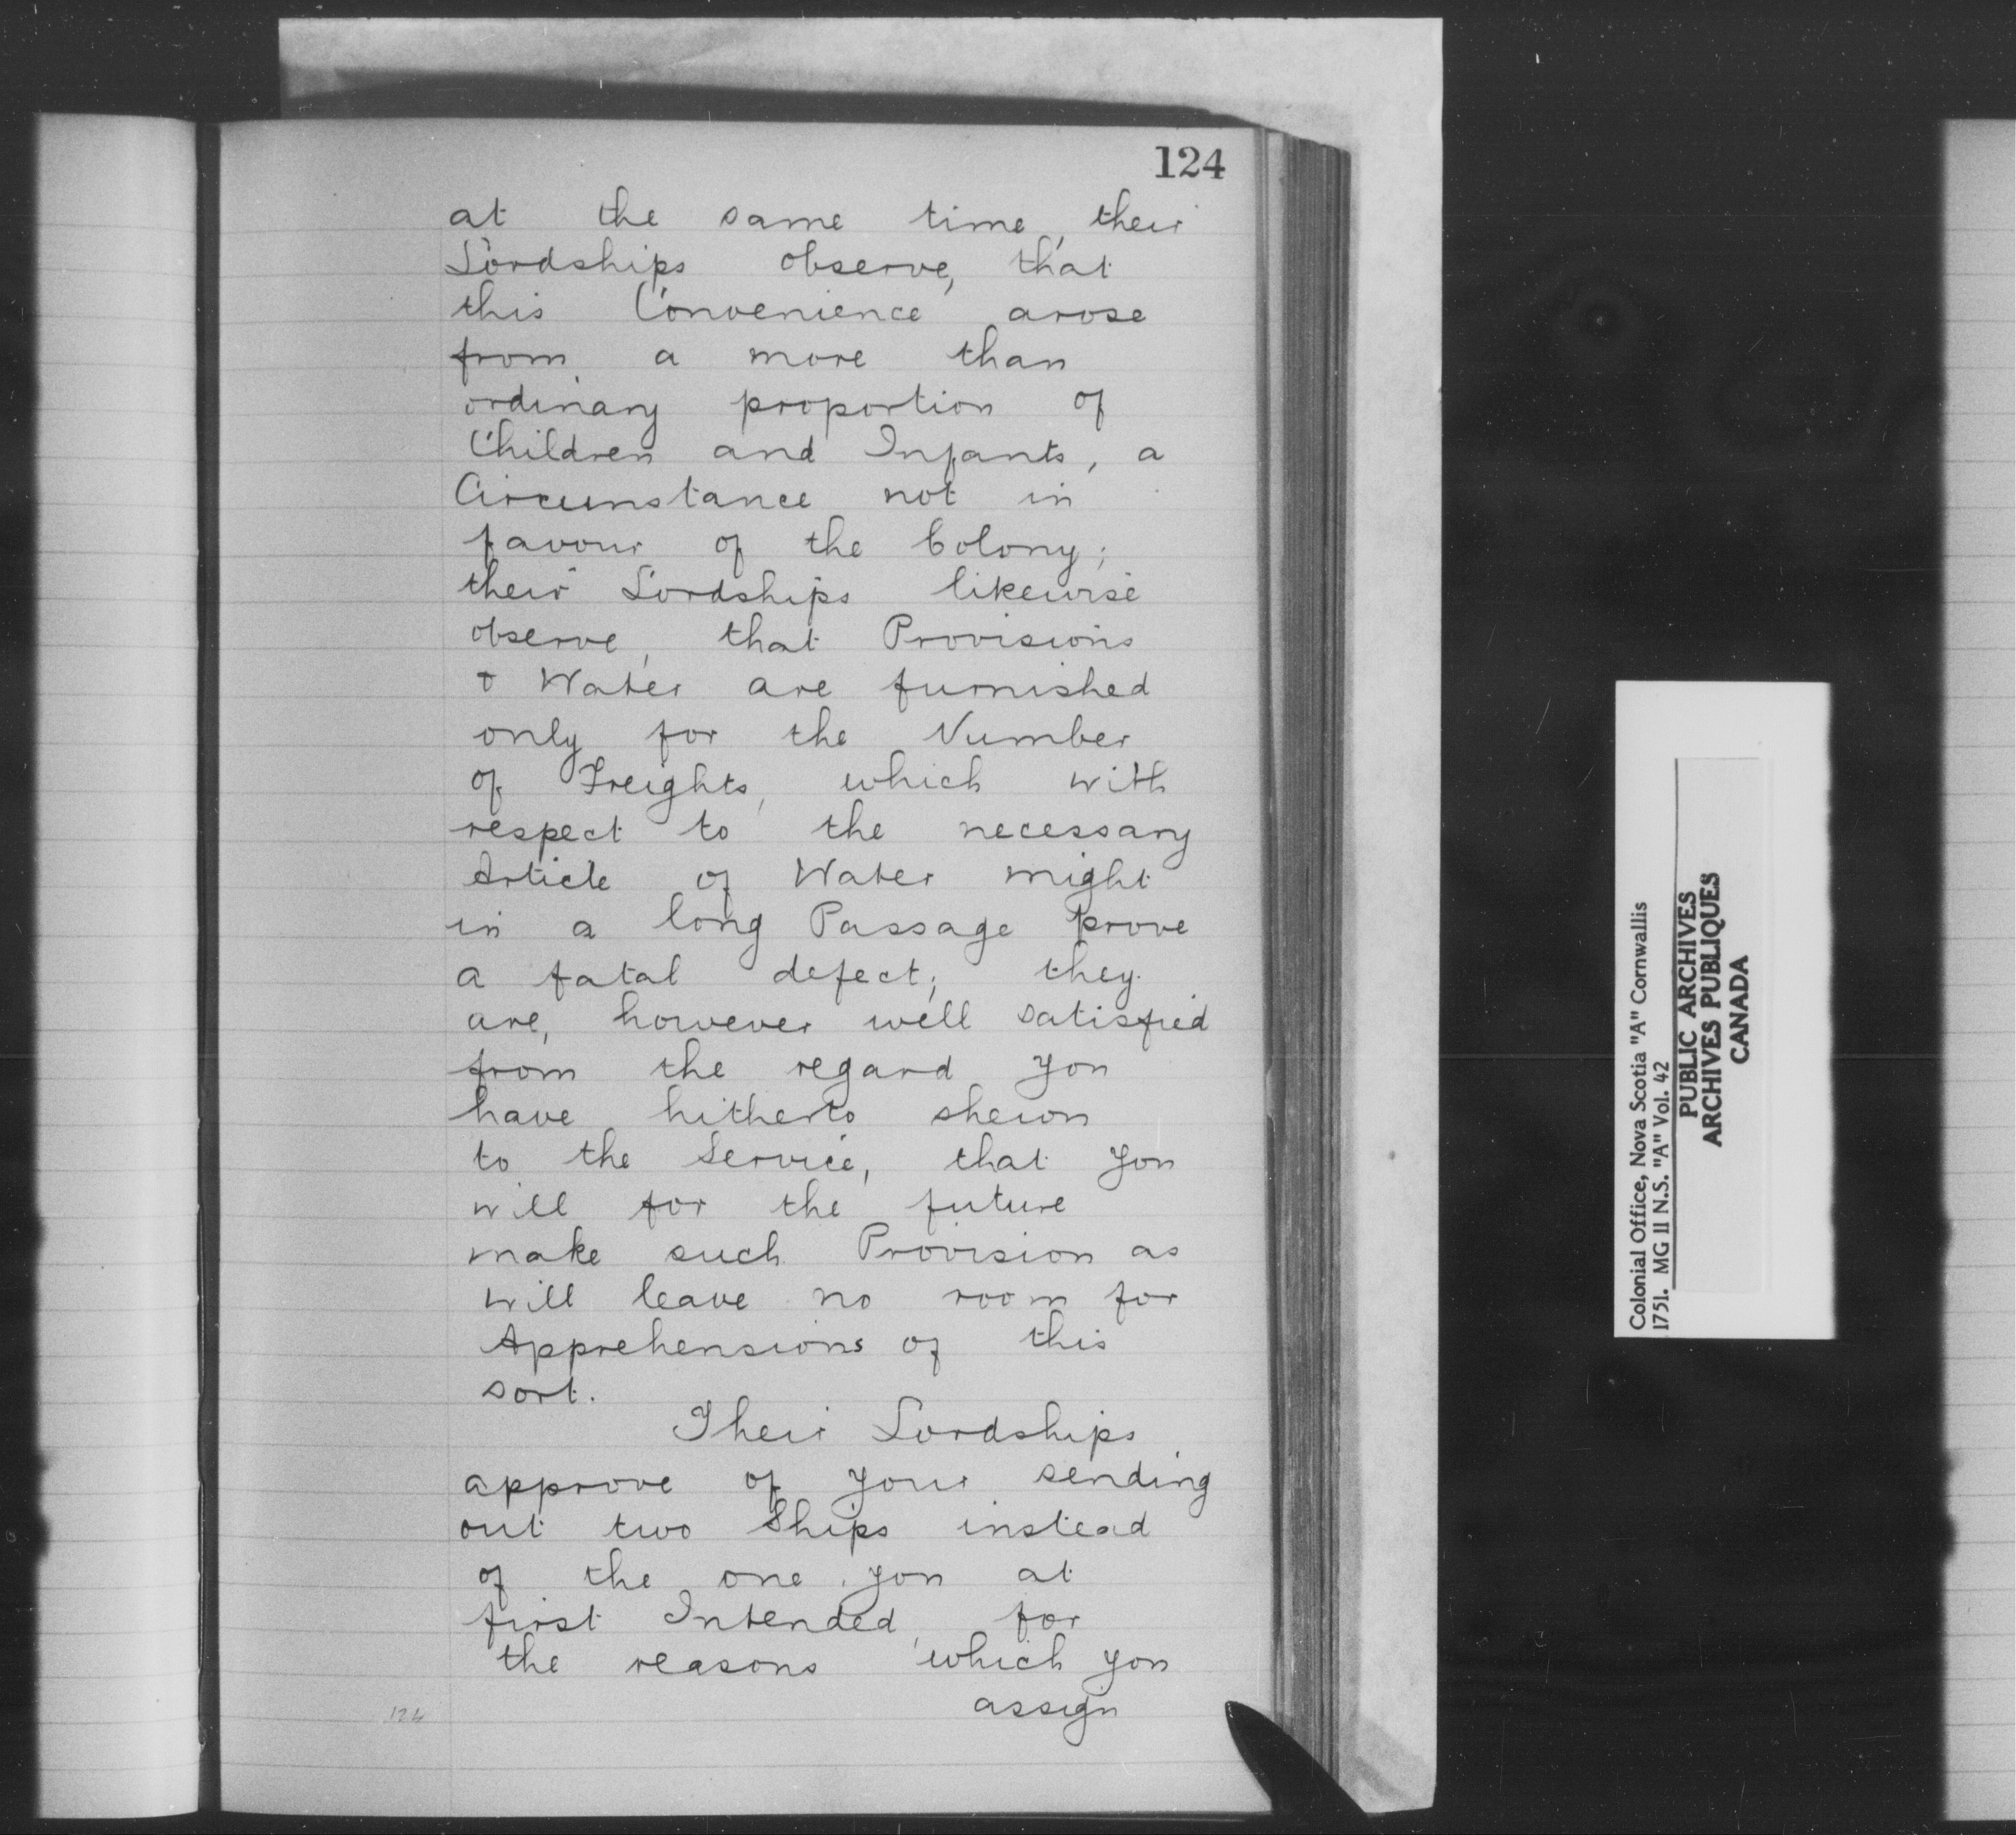 124
at the same time, their
Lordships observe, that
this Convenience arose
from a more than
ordinary proportion of
Children and Infants, a
Circumstance not in
favour of the Colony;
their Lordships likewise
observe, that Provisions
& Water are furnished
only for the Number
of Freights, which with
respect to the necessary
Article of Water might
in a long Passage prove
a fatal defect; they
are, however well satisfied
from the regard you
have hitherto shewn
to the Service, that you
will for the future
make such Provision as
will leave no room for
Apprehensions of this
sort.
Their Lordships
approve of your sending
out two Ships instead
of the one you at
first Intended, for
the reasons which you
assign
124
Colonial Office, Nova Scotia "A" Cornwallis
1751. MG 11 N.S. "A" Vol. 42
PUBLIC ARCHIVES
ARCHIVES PUBLIQUES
CANADA